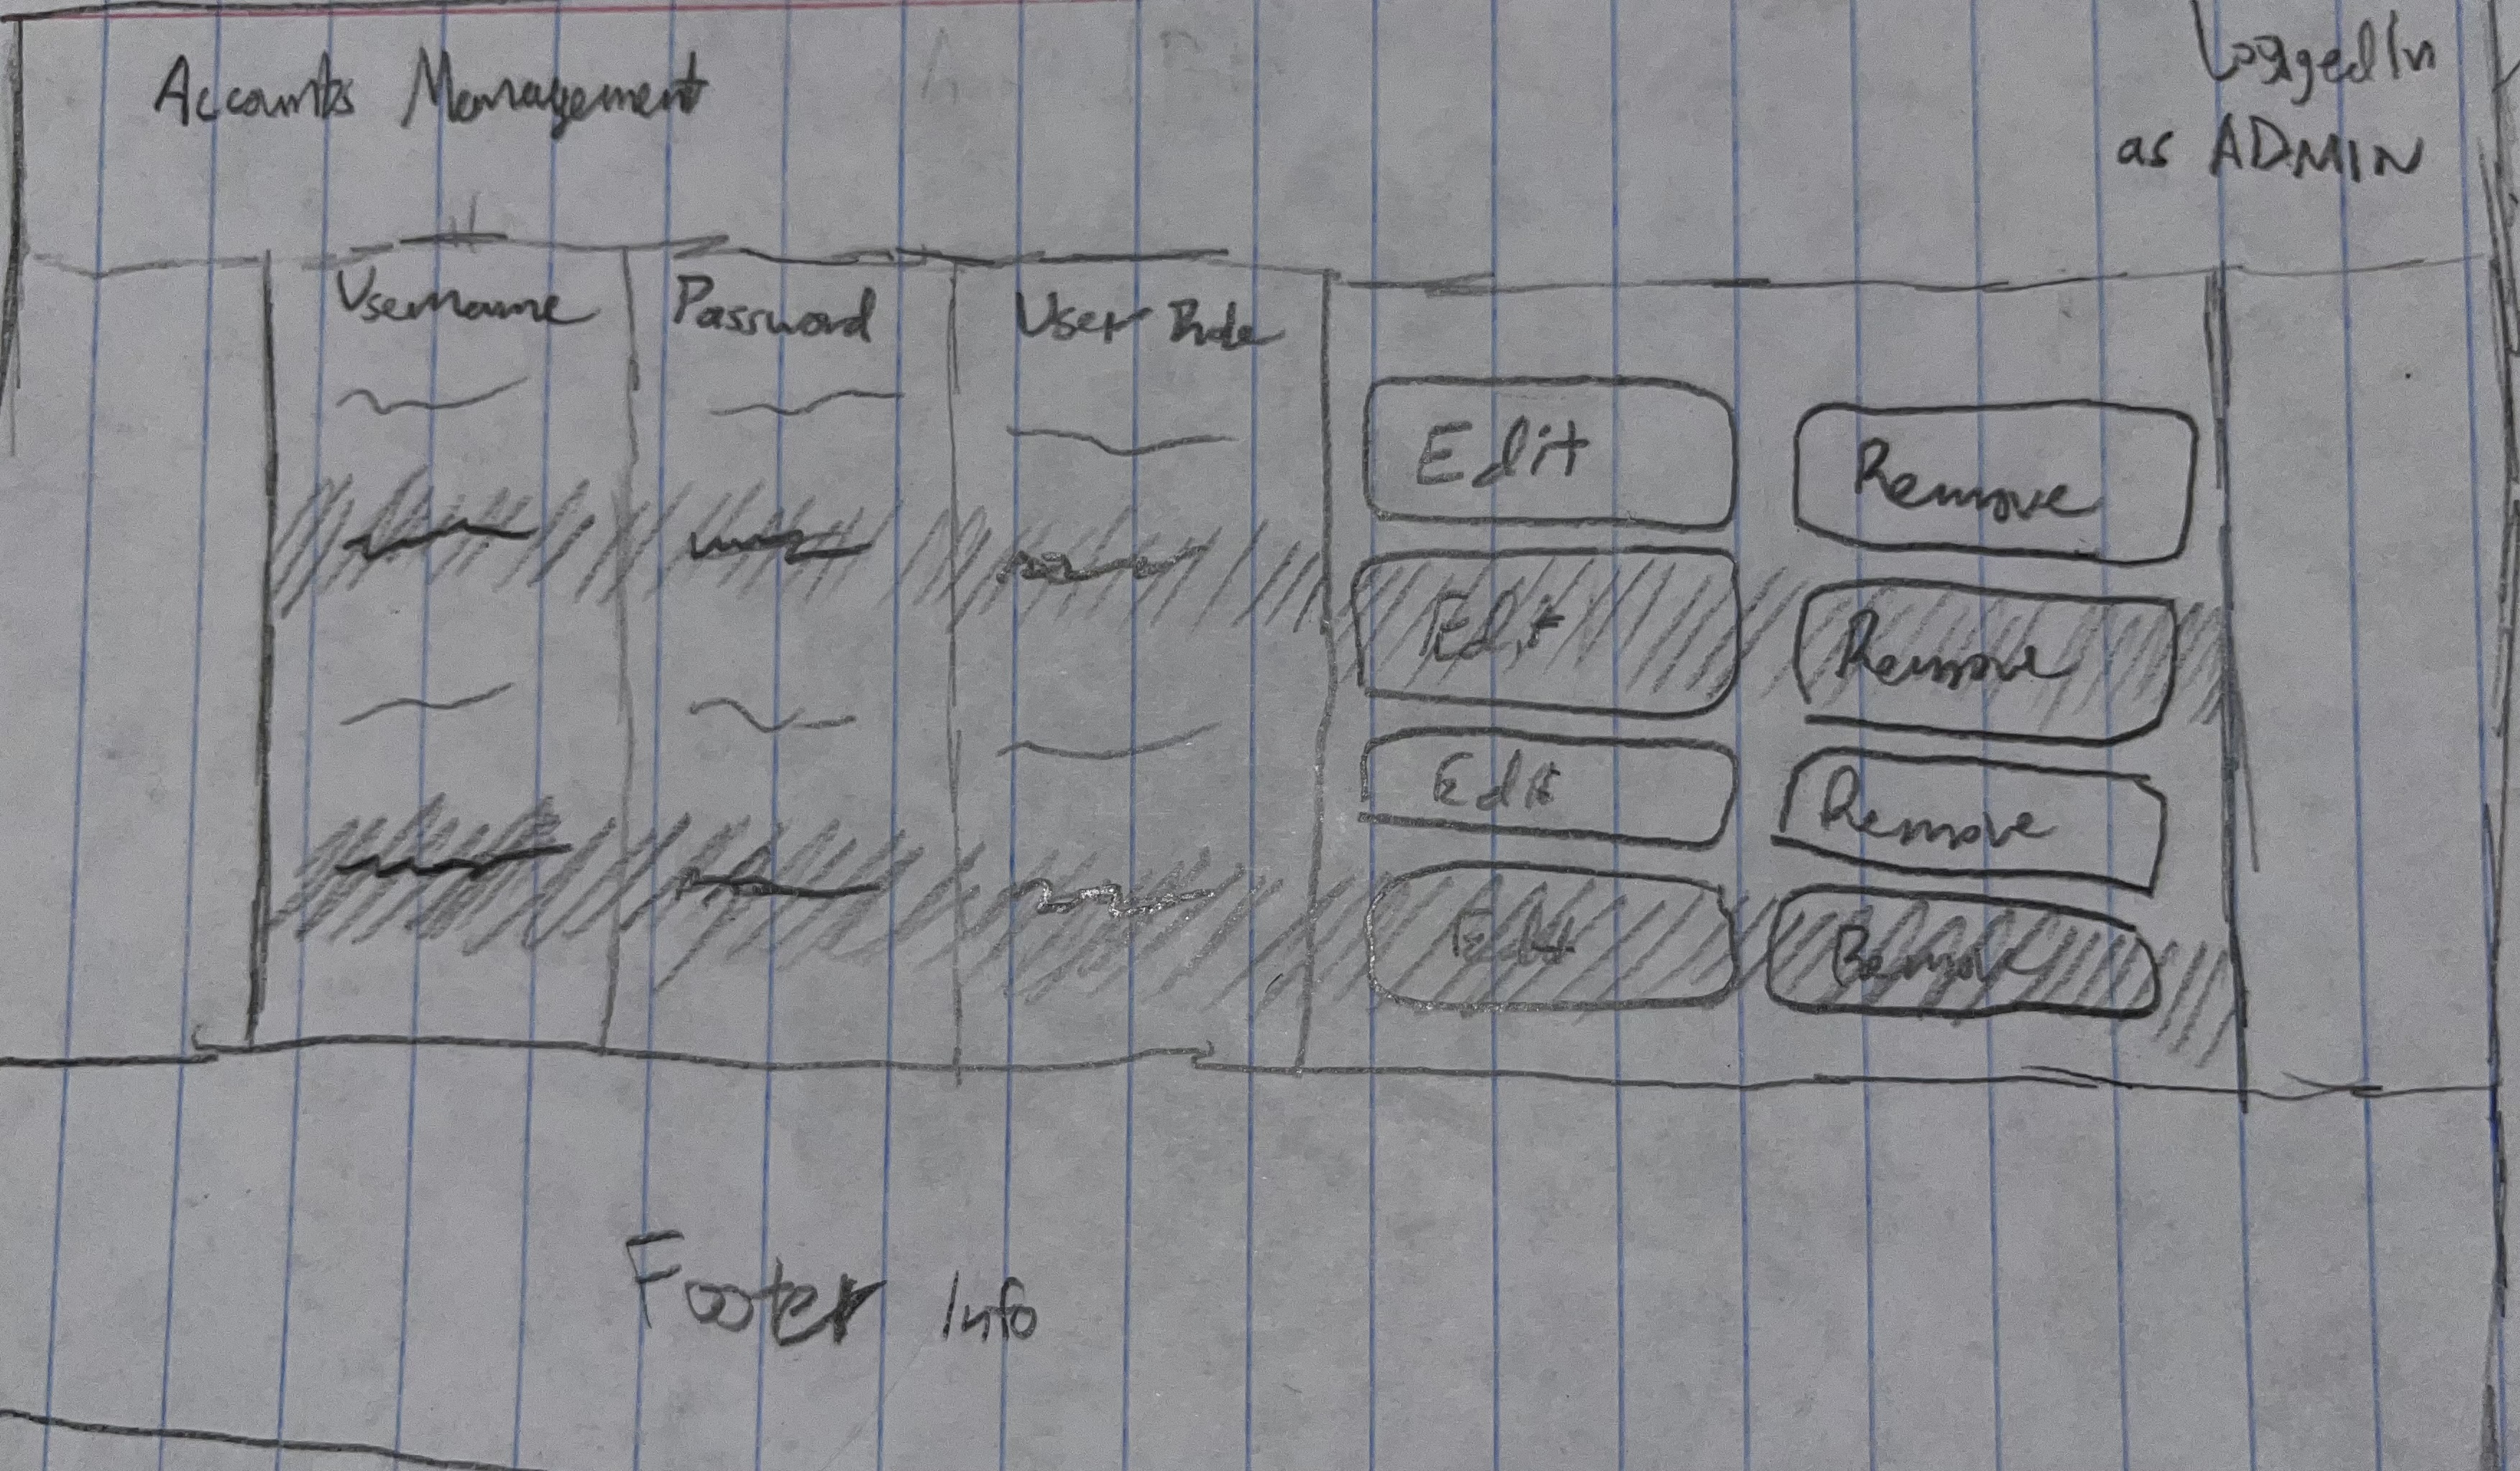 Accounts Management
Logged In
as ADMIN
Username Password User Role
Edit Remove
Edit Remove
Edit Remove
Edit Remove
Footer Info